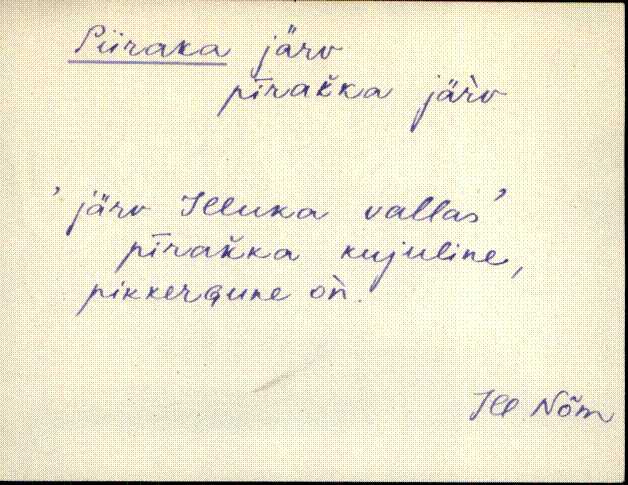 Piiraka järv
pīrak̆ka jär̀v
'järv Illuka vallas'
pīrak̆ka kujuline,
pikkergune oǹ.
Ill Nõm